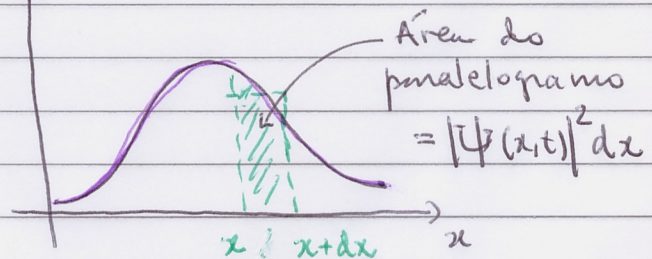 Área do
paralelogramo
= |Ψ(x,t)|² dx
x x+dx x